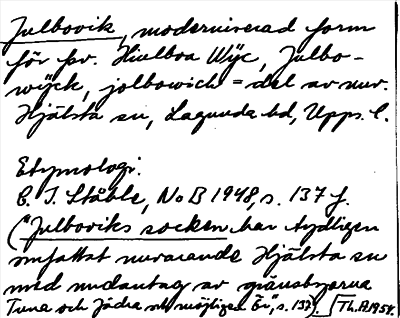 Julbovik, moderniserad form
för fsv. Hiulboa Wijc, Julbo-
wijck, jolbowich = del av nuv.
Hjälsta sn, Lagunda hd, Upps. l.
Etymologi:
C. I. Ståhle, NoB 1948, s. 137 f.
("Julboviks socken har tydligen
omfattat nuvarande Hjälsta sn
med undantag av gränsbyarna
Tuna och Jädra och möjligen Ö", s. 137). Th.A 1954.